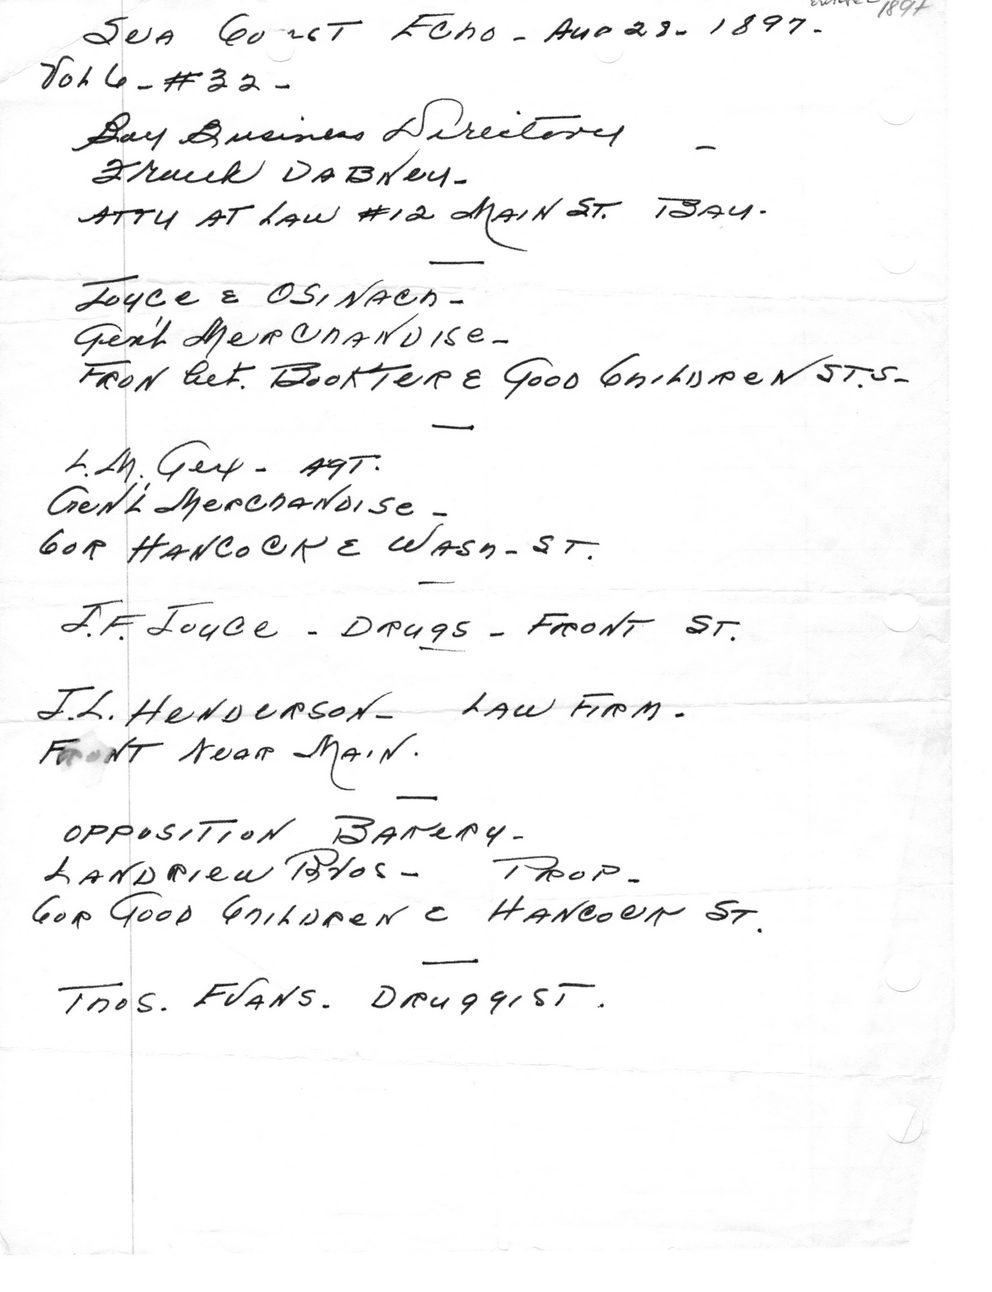 1897
Sea Coast Echo - Aug 28 - 1897 -
Vol 6 - #32 -
Bay Business Directory -
Frank Dabney -
Atty at Law #12 Main St. Bay.
Joyce & Osinach -
Gen'l Merchandise -
Fron bet. Bookter & Good Children St.s -
L.M. Gex - Agt.
Gen'l Merchandise -
Cor Hancock & Wash - St.
J.F. Joyce - Drugs - Front St.
J.L. Henderson - Law Firm.
Front Near Main.
Opposition Bakery -
Landrieu Bros - Prop -
Cor Good Children & Hancock St.
Thos. Evans. Druggist.